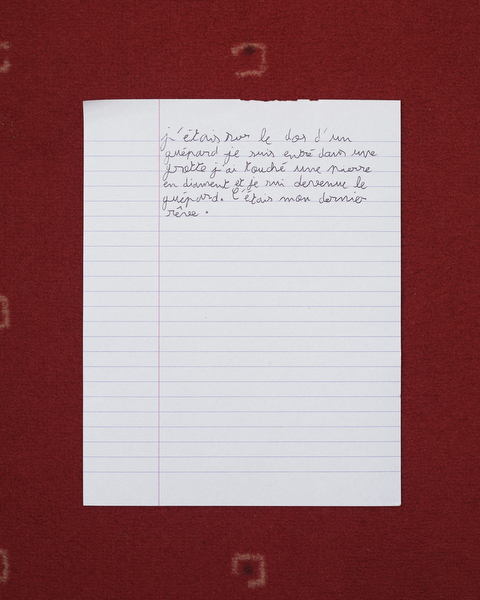 j'étais sur le dos d'un
guépard je suis entré dans une
grotte j'ai touché une pierre
en diament et je sui devenue le
guépard. C'étais mon dernier
rêve.